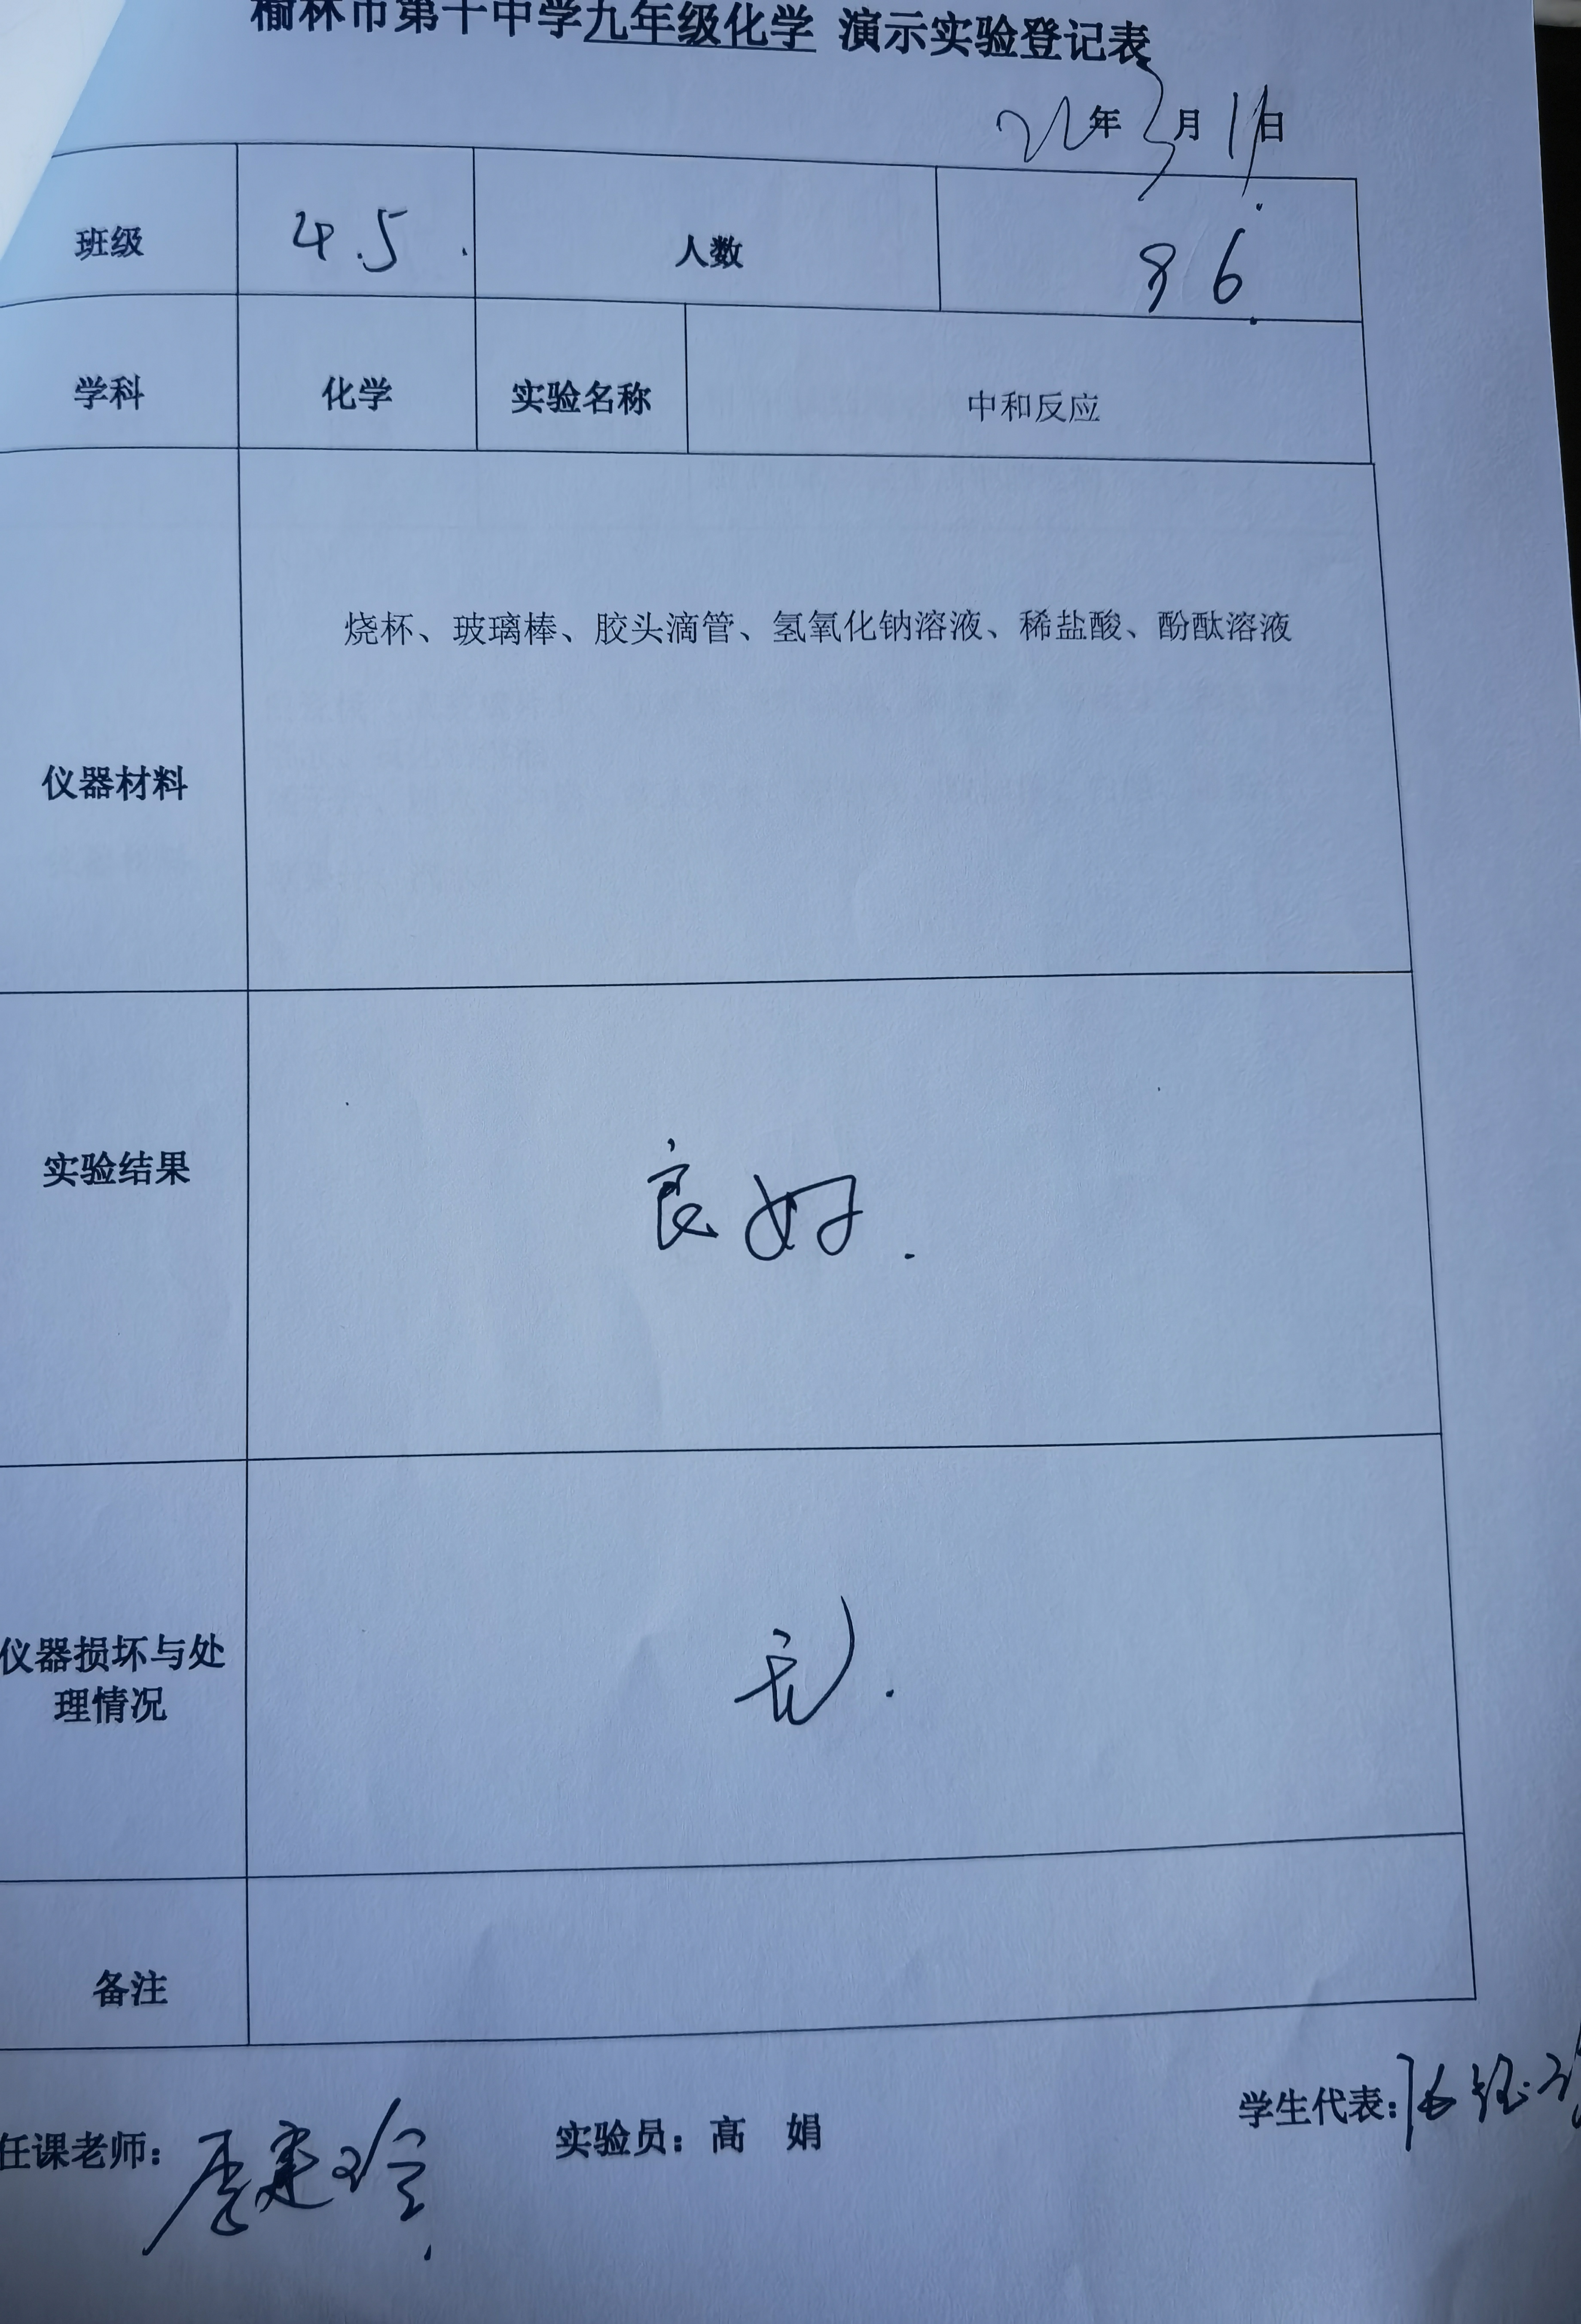 榆林市第十中学九年级化学 演示实验登记表
22年3月11日
班级 4.5. 人数 86.
学科 化学 实验名称 中和反应
仪器材料 烧杯、玻璃棒、胶头滴管、氢氧化钠溶液、稀盐酸、酚酞溶液
实验结果 良好.
仪器损坏与处
理情况
无.
备注
任课老师: 实验员: 高 娟 学生代表: